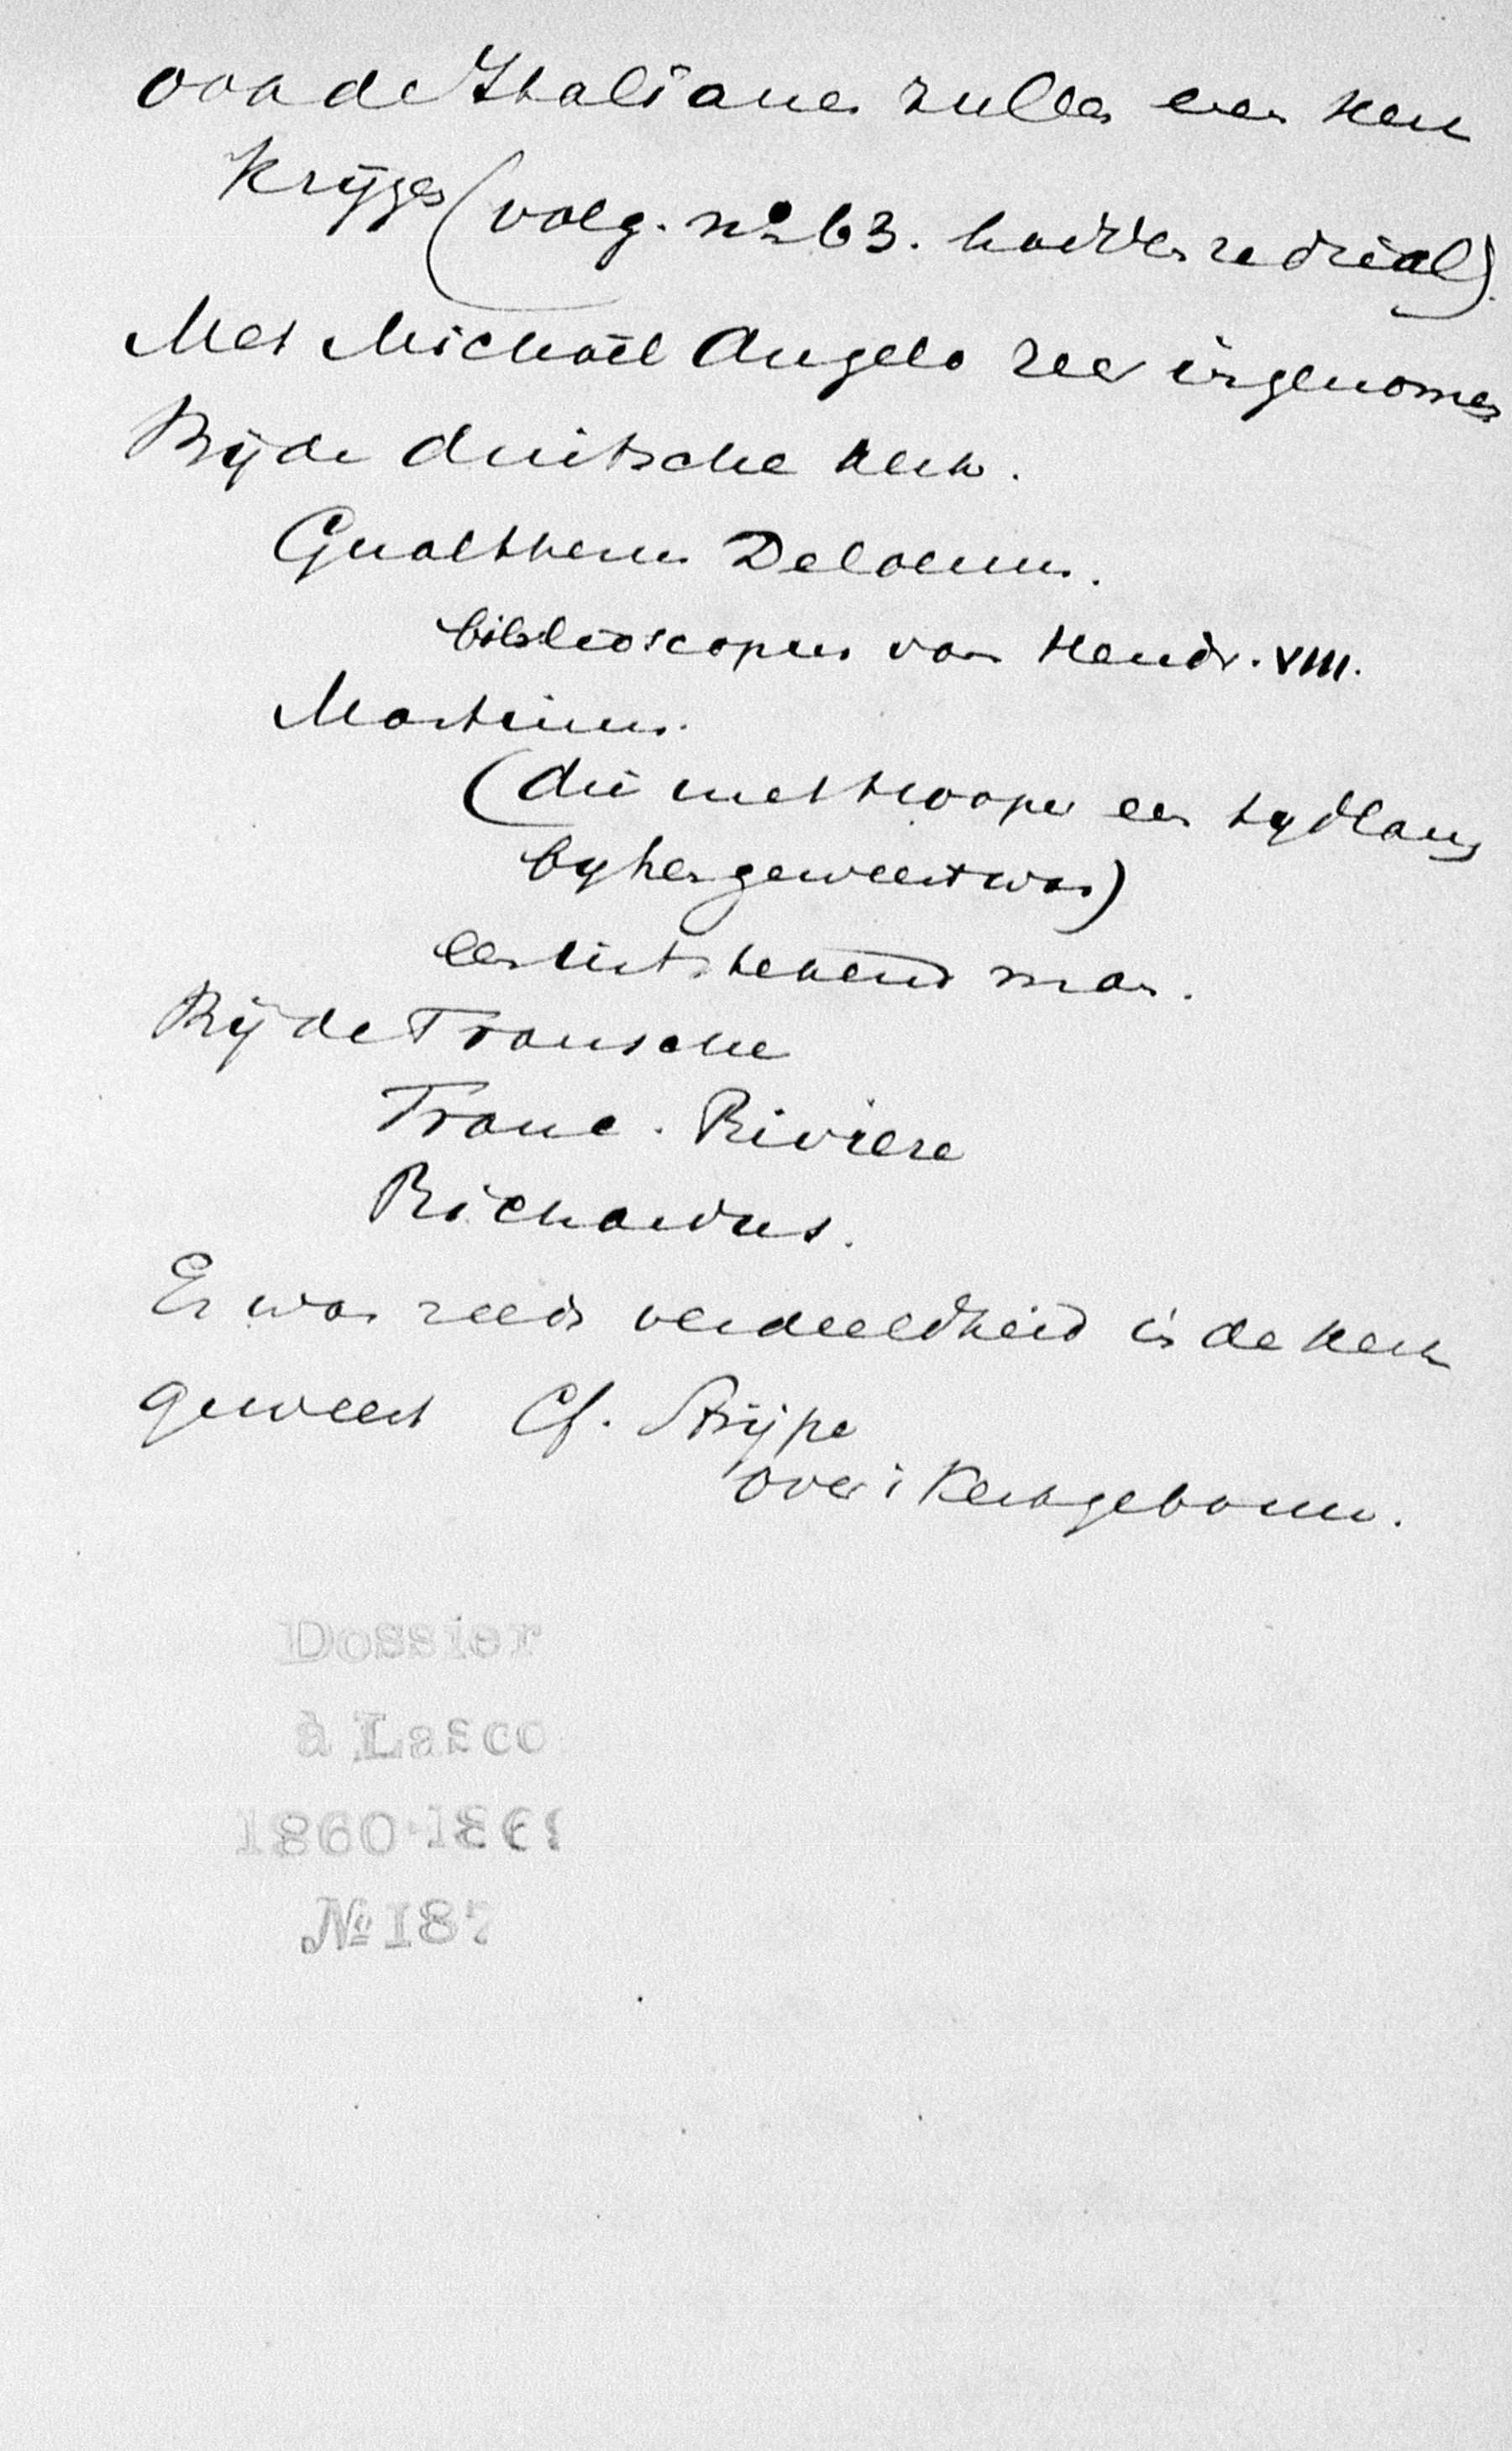 ook de Italianen zullen een kerk
Krijgen (volg. no 63. hadden ze dréal).
Met Michaël Angelo zeer ingenomen
Bij de duitsche kerk.
Gualtherus Deloenus.
biblioscopus van Hendr. VIII.
Martinus.
(die met Utenhove een tydlang
by hen geweest was)
een uitstekend man.
Bij de Fransche
Franc. Riviere
Richardus.
Er was reeds verdeeldheid in de kerk
geweest Cf. Strijpe
over 't Kerkgebouw.
Dossier
à Lasco
1860-1861
№ 187